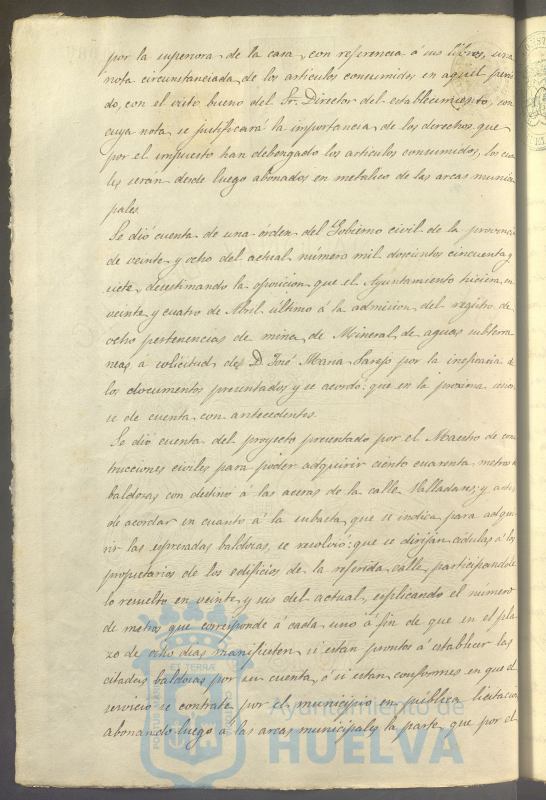 por la superiora de la casa, con referencia á sus libros, una
nota circunstanciada de los articulos consumidos en aquel perio
do, con el visto bueno del Sr. Director del establecimiento, con
cuya nota se justificará la importancia de los derechos que
por el impuesto han debengado los articulos consumidos, los cua
les serán desde luego abonados en metalico de las arcas munici
pales.
Se dió cuenta de una órden del Gobierno civil de la provincia
de veinte y ocho del actual número mil doscientos cincuenta y
siete, desestimando la oposicion que el Ayuntamiento hiciera en
veinte y cuatro de Abril último á la admision del registro de
ocho pertenencias de mina de Mineral de aguas subterra
neas á solicitud de D. José Maria Parejo por la ineficacia de
los documentos presentados y se acordó: que en la proxima sesion
se de cuenta con antecedentes.
Se dió cuenta del proyecto presentado por el Maestro de cons
trucciones civiles para poder adquirir ciento cuarenta metros de
baldosas con destino á las aceras de la calle Valladares, y antes
de acordar en cuanto á la subasta que se indica para adqui
rir las espresadas baldosas, se resolvió: que se dirijan cédulas á los
propietarios de los edificios de la referida calle participandole
lo resuelto en veinte y seis del actual, esplicando el número
de metros que corresponde á cada uno á fin de que en el pla
zo de ocho dias manifiesten si estan prontos á establecer las
citadas baldosas por su cuenta, ó si estan conformes en que el
servicio se contrate por el municipio en pública licitacion
abonando luego á las arcas municipales la parte que por el
Ayuntamiento de
HUELVA